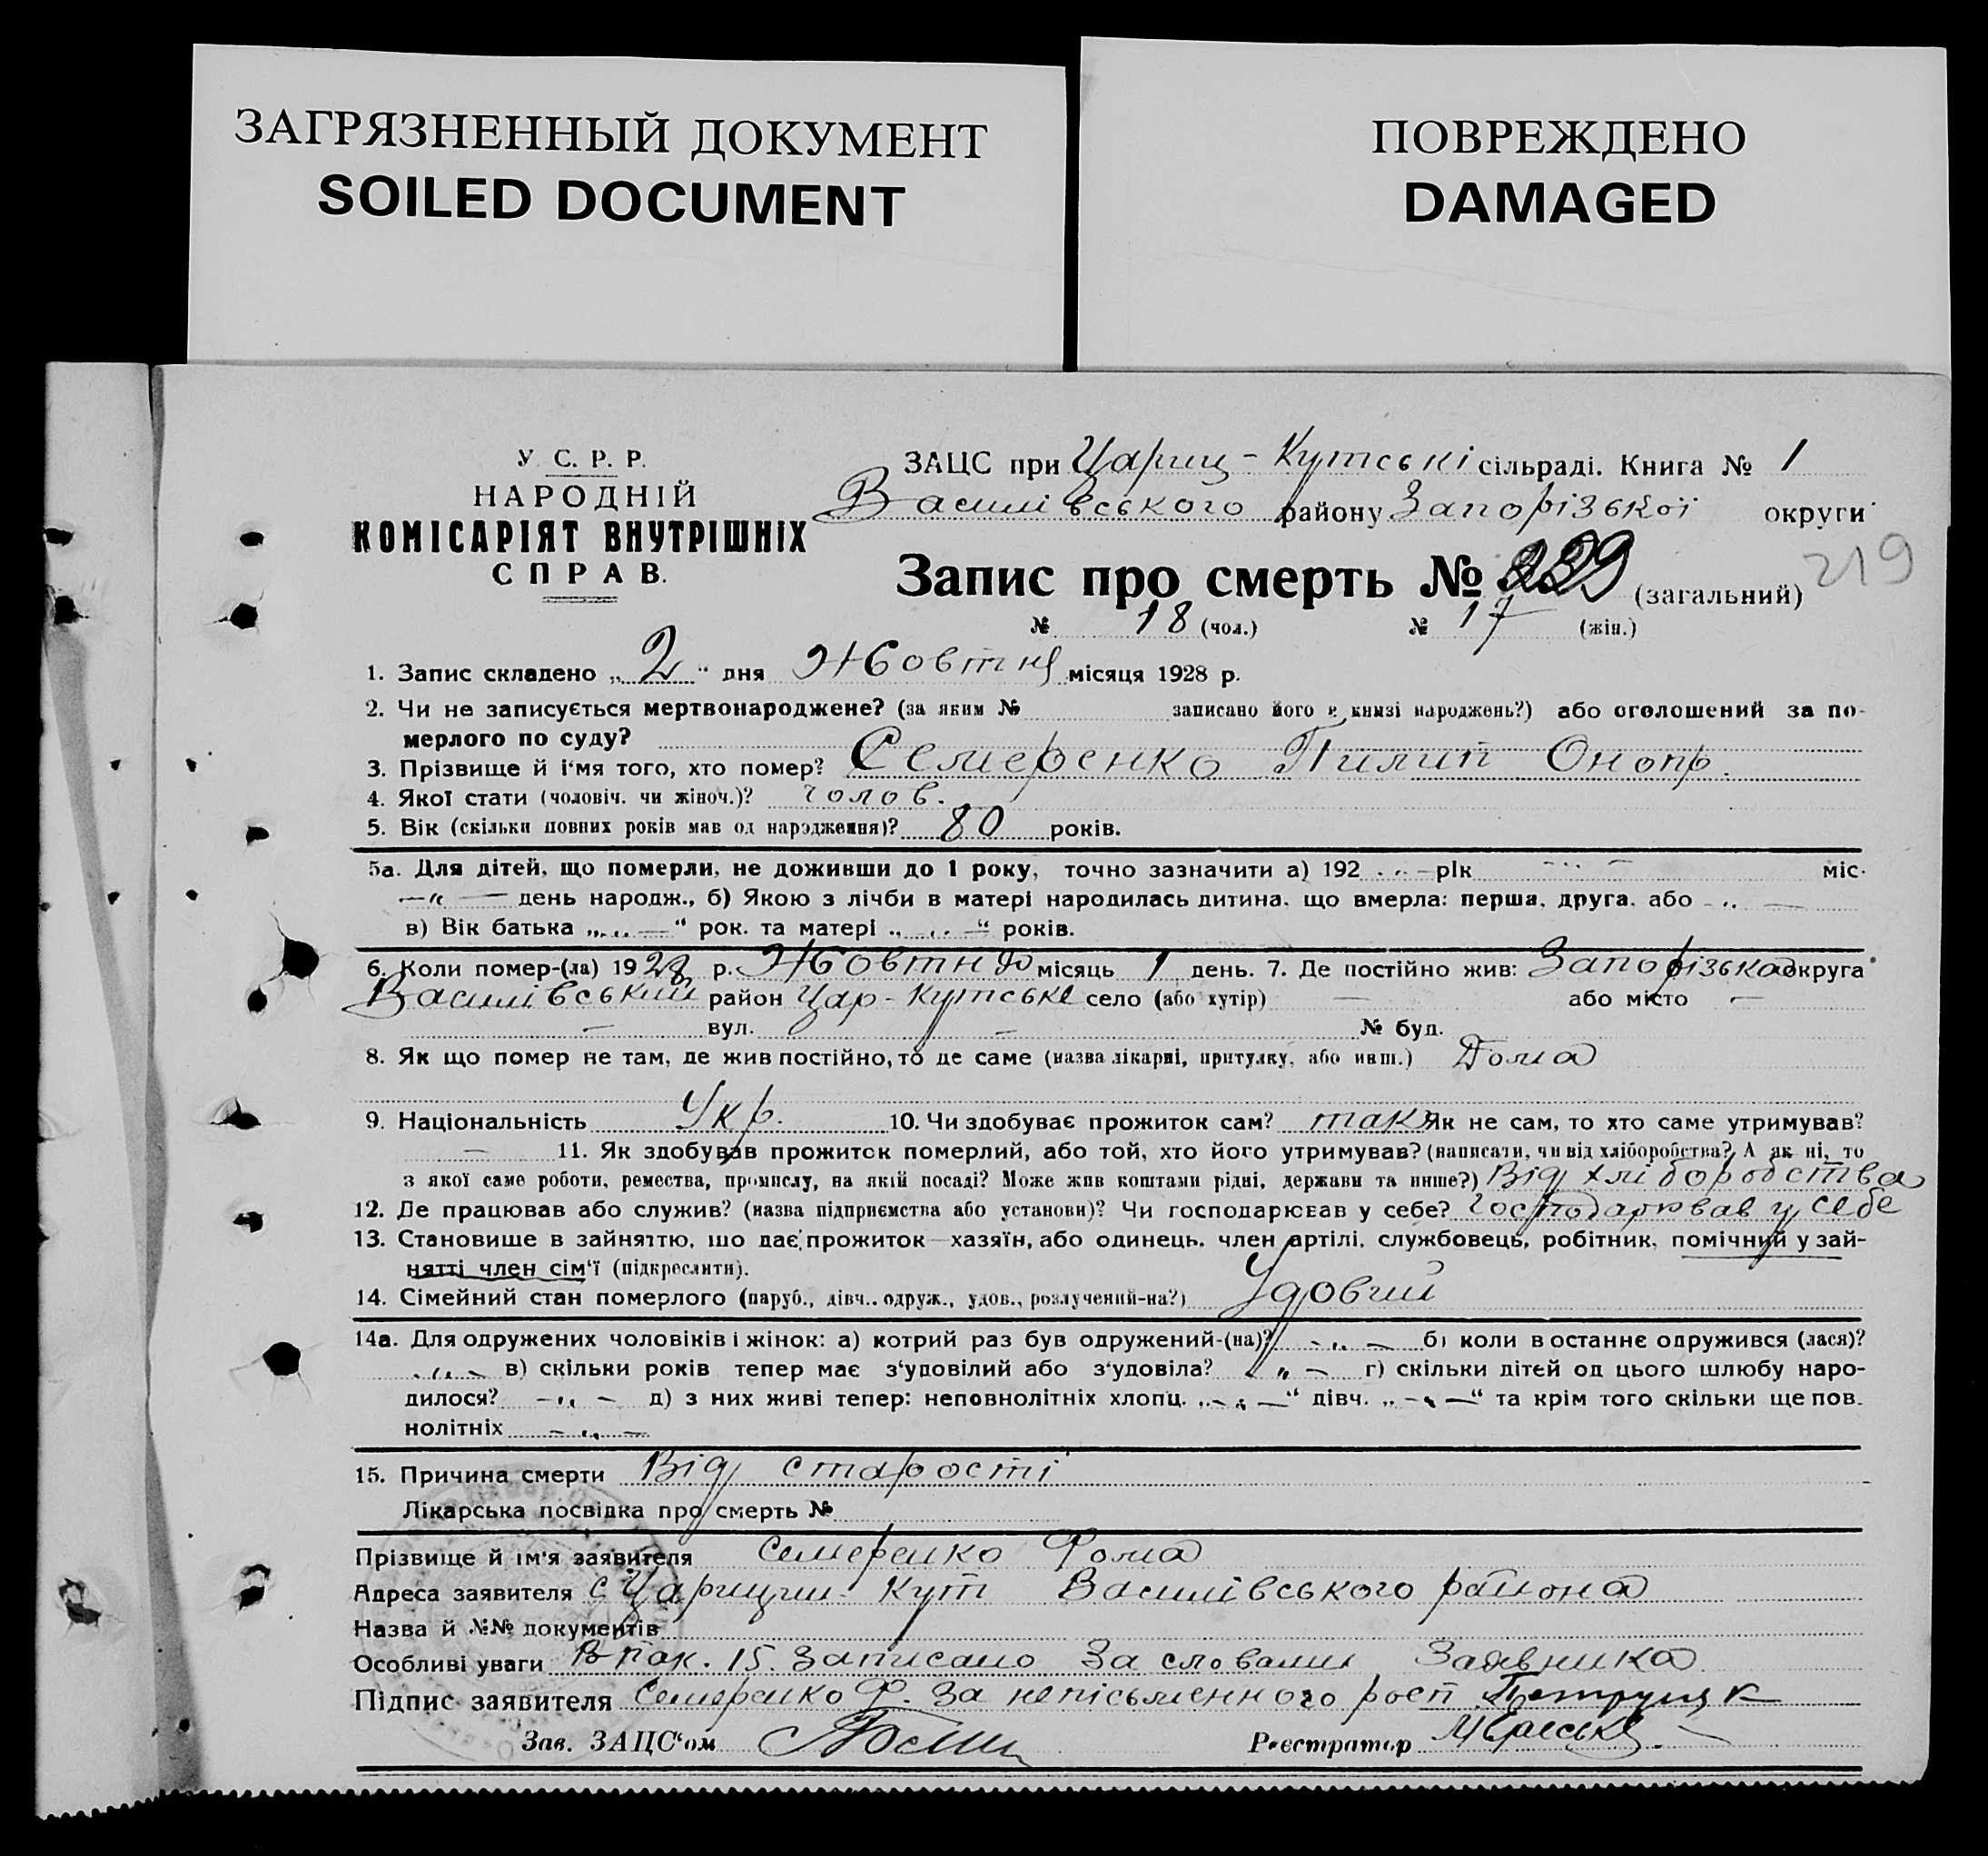 ЗАГРЯЗНЕННЫЙ ДОКУМЕНТ
SOILED DOCUMENT
ПОВРЕЖДЕНО
DAMAGED
У. С. Р. Р.
НАРОДНІЙ
КОМІСАРІЯТ ВНУТРІШНІХ
СПРАВ.
ЗАЦС при Цариц-Кутські сільраді. Книга № 1
Василівського району Запорізької округи
Запис про смерть № (загальний) 219
№ 18 (чол.) № 17 (жін.)
1. Запис складено „2“ дня Жовтня місяця 1928 р.
2. Чи не записується мертвонароджене? (за яким № записано його в книзі народжень?) або оголошений за по-
мерлого по суду?
3. Прізвище й і'мя того, хто помер? Семеренко Пилип Онопр.
4. Якої стати (чоловіч. чи жіноч.)? чолов.
5. Вік (скільки повних років мав од народження)? 80 років.
5а. Для дітей, що померли, не доживши до 1 року, точно зазначити а) 192 . „ — рік — „ — міс.
— „ — день народж., б) Якою з лічби в матері народилась дитина, що вмерла: перша, друга, або - „ —
в) Вік батька „ „ — “ рок. та матері „ „ — “ років.
6. Коли помер-(ла) 1928 р. Жовтня місяць 1 день. 7. Де постійно жив: Запорізька округа
Василівський район Цар-Кутське село (або хутір) — або місто —
— вул. — № буд.
8. Як що помер не там, де жив постійно, то де саме (назва лікарні, притулку, або инш.) Дома
9. Національність Укр. 10. Чи здобуває прожиток сам? так Як не сам, то хто саме утримував?
— 11. Як здобував прожиток померлий, або той, хто його утримував? (написати, чи від хліборобства? А як ні, то
з якої саме роботи, ремества, промислу, на якій посаді? Може жив коштами рідні, держави та инше?) Від хліборобства
12. Де працював або служив? (назва підприємства або установи)? Чи господарював у себе? Господарював у себе
13. Становище в зайняттю, що дає прожиток—хазяїн, або одинець, член артілі, службовець, робітник, помічний у зай-
нятті член сім'ї (підкреслити).
14. Сімейний стан померлого (паруб., дівч., одруж., удов., розлучений-на?) Удовий
14а. Для одружених чоловіків і жінок: а) котрий раз був одружений-(на)? - „ — б) коли в останнє одружився (лася)?
. „ - в) скільки років тепер має з'удовілий або з'удовіла? „ — г) скільки дітей од цього шлюбу наро-
дилося? - „ - д) з них живі тепер: неповнолітніх хлопц. „ - „ — “ дівч. „ - „ — “ та крім того скільки ще пов.
нолітніх - „ —
15. Причина смерти Від старості
Лікарська посвідка про смерть №
Прізвище й ім'я заявителя Семеренко Фома
Адреса заявителя с Царицин Кут Василівського района
Назва й №№ документів
Особливі уваги В пак. 15. Записано За словами Заявника
Підпис заявителя Семеренко Ф. За неписьменного росп
Зав. ЗАЦС'ом
Реєстратор